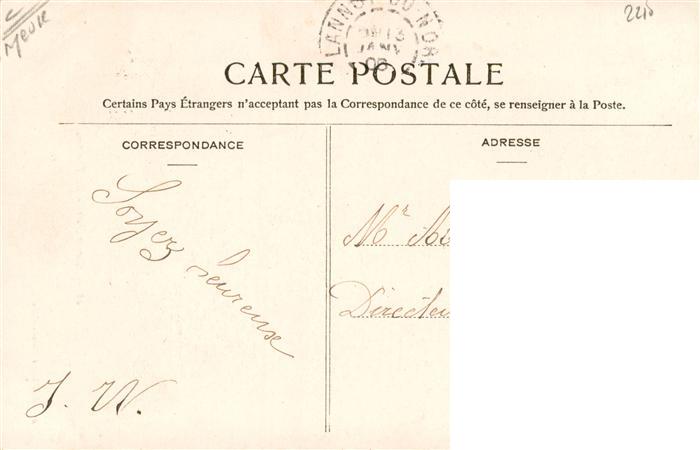 Meuse
2210
LANNOY DU NORD
13
JANV
06
CARTE POSTALE
Certains Pays Étrangers n'acceptant pas la Correspondance de ce côté, se renseigner à la Poste.
CORRESPONDANCE
Soyez
heureux
J. W.
ADRESSE
Mr
Directeu